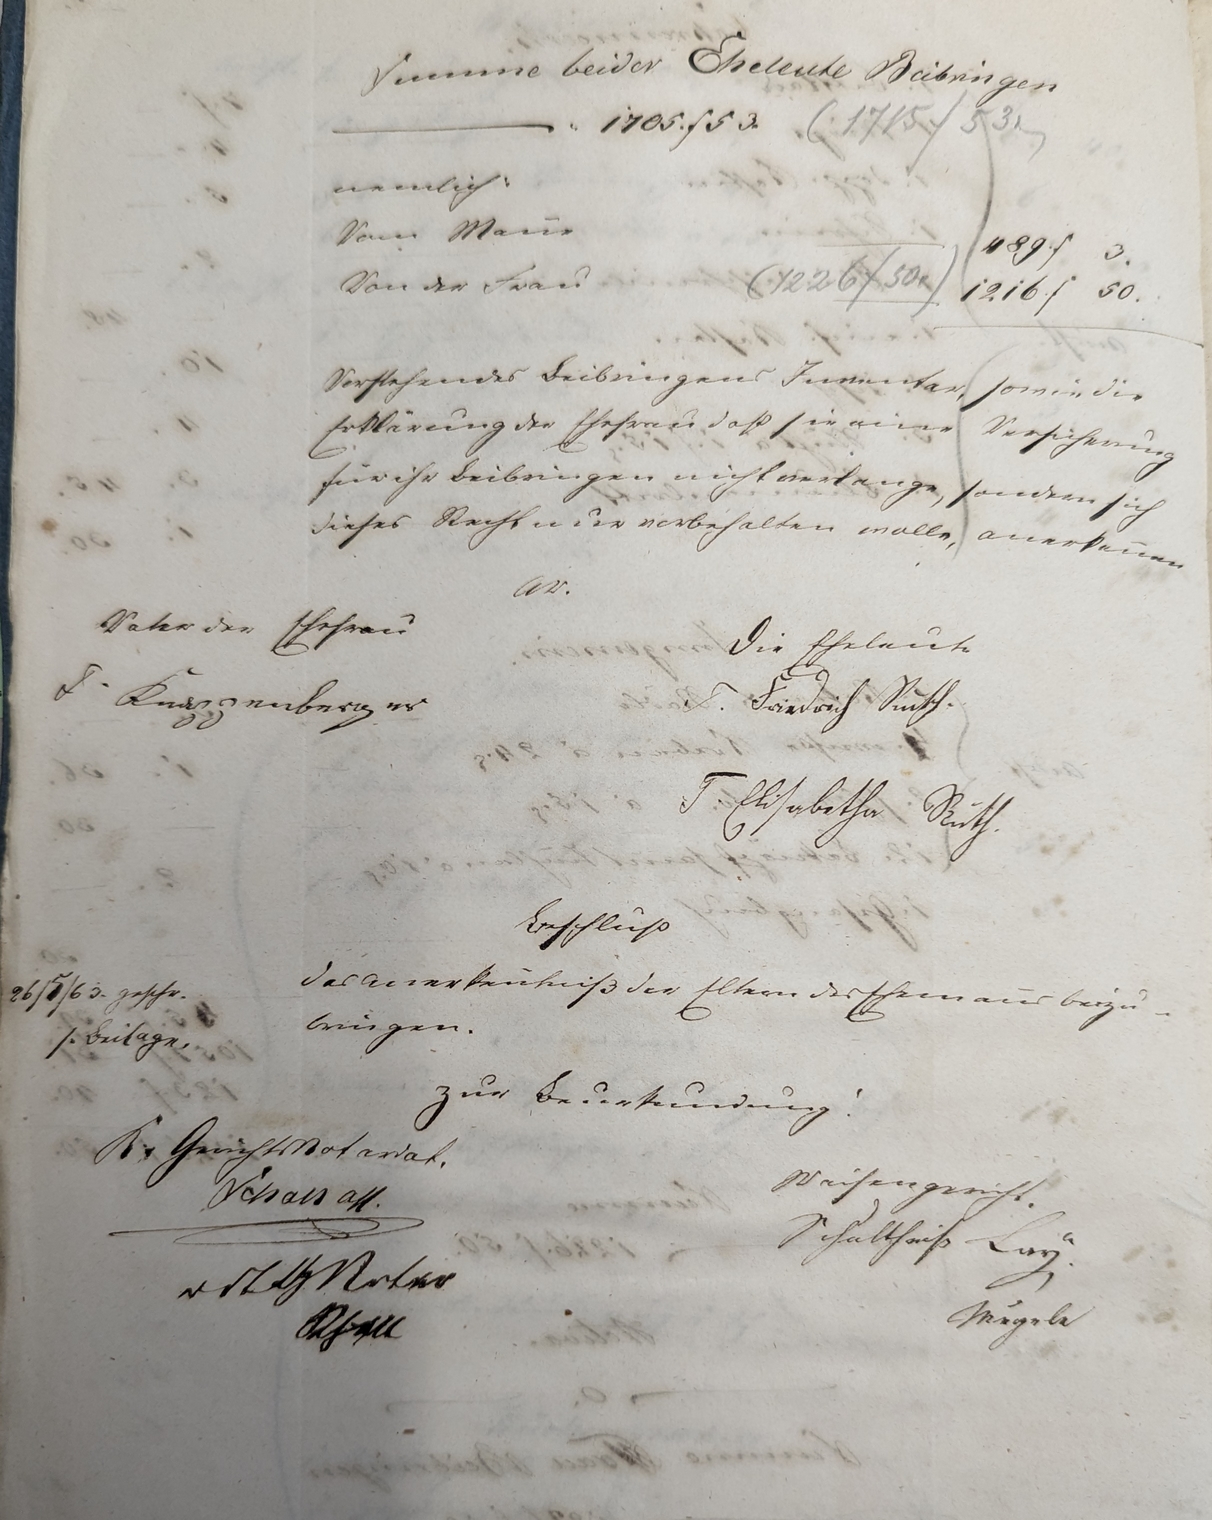 Summe beider Eheleute Beibringen
1705. f 53. (1715 f 53.)
nemlich:
Vom Mann 489. f 3.
Von der Frau (1226 f 50.) 1216. f 50.
Vorstehendes Beibringens Inventar, sowie die
Erklärung der Ehefrau daß sie eine Versicherung
für ihr Beibringen nicht verlange, sondern sich
dieses Recht nur vorbehalten wolle, anerkennen
Vater der Ehefrau
T. Knappenberger
Die Eheleute
T. Friedrich Ruth.
T. Elisabetha Ruth.
Beschluß
das Anerkentniß der Eltern des Ehemanns beizu-
bringen.
26/5/63. gesch.
s. Beilage.
Zur Beurkundung!
K. Gerichts Notariat.
Waisengericht.
Schultheiß Lay.
Mugele